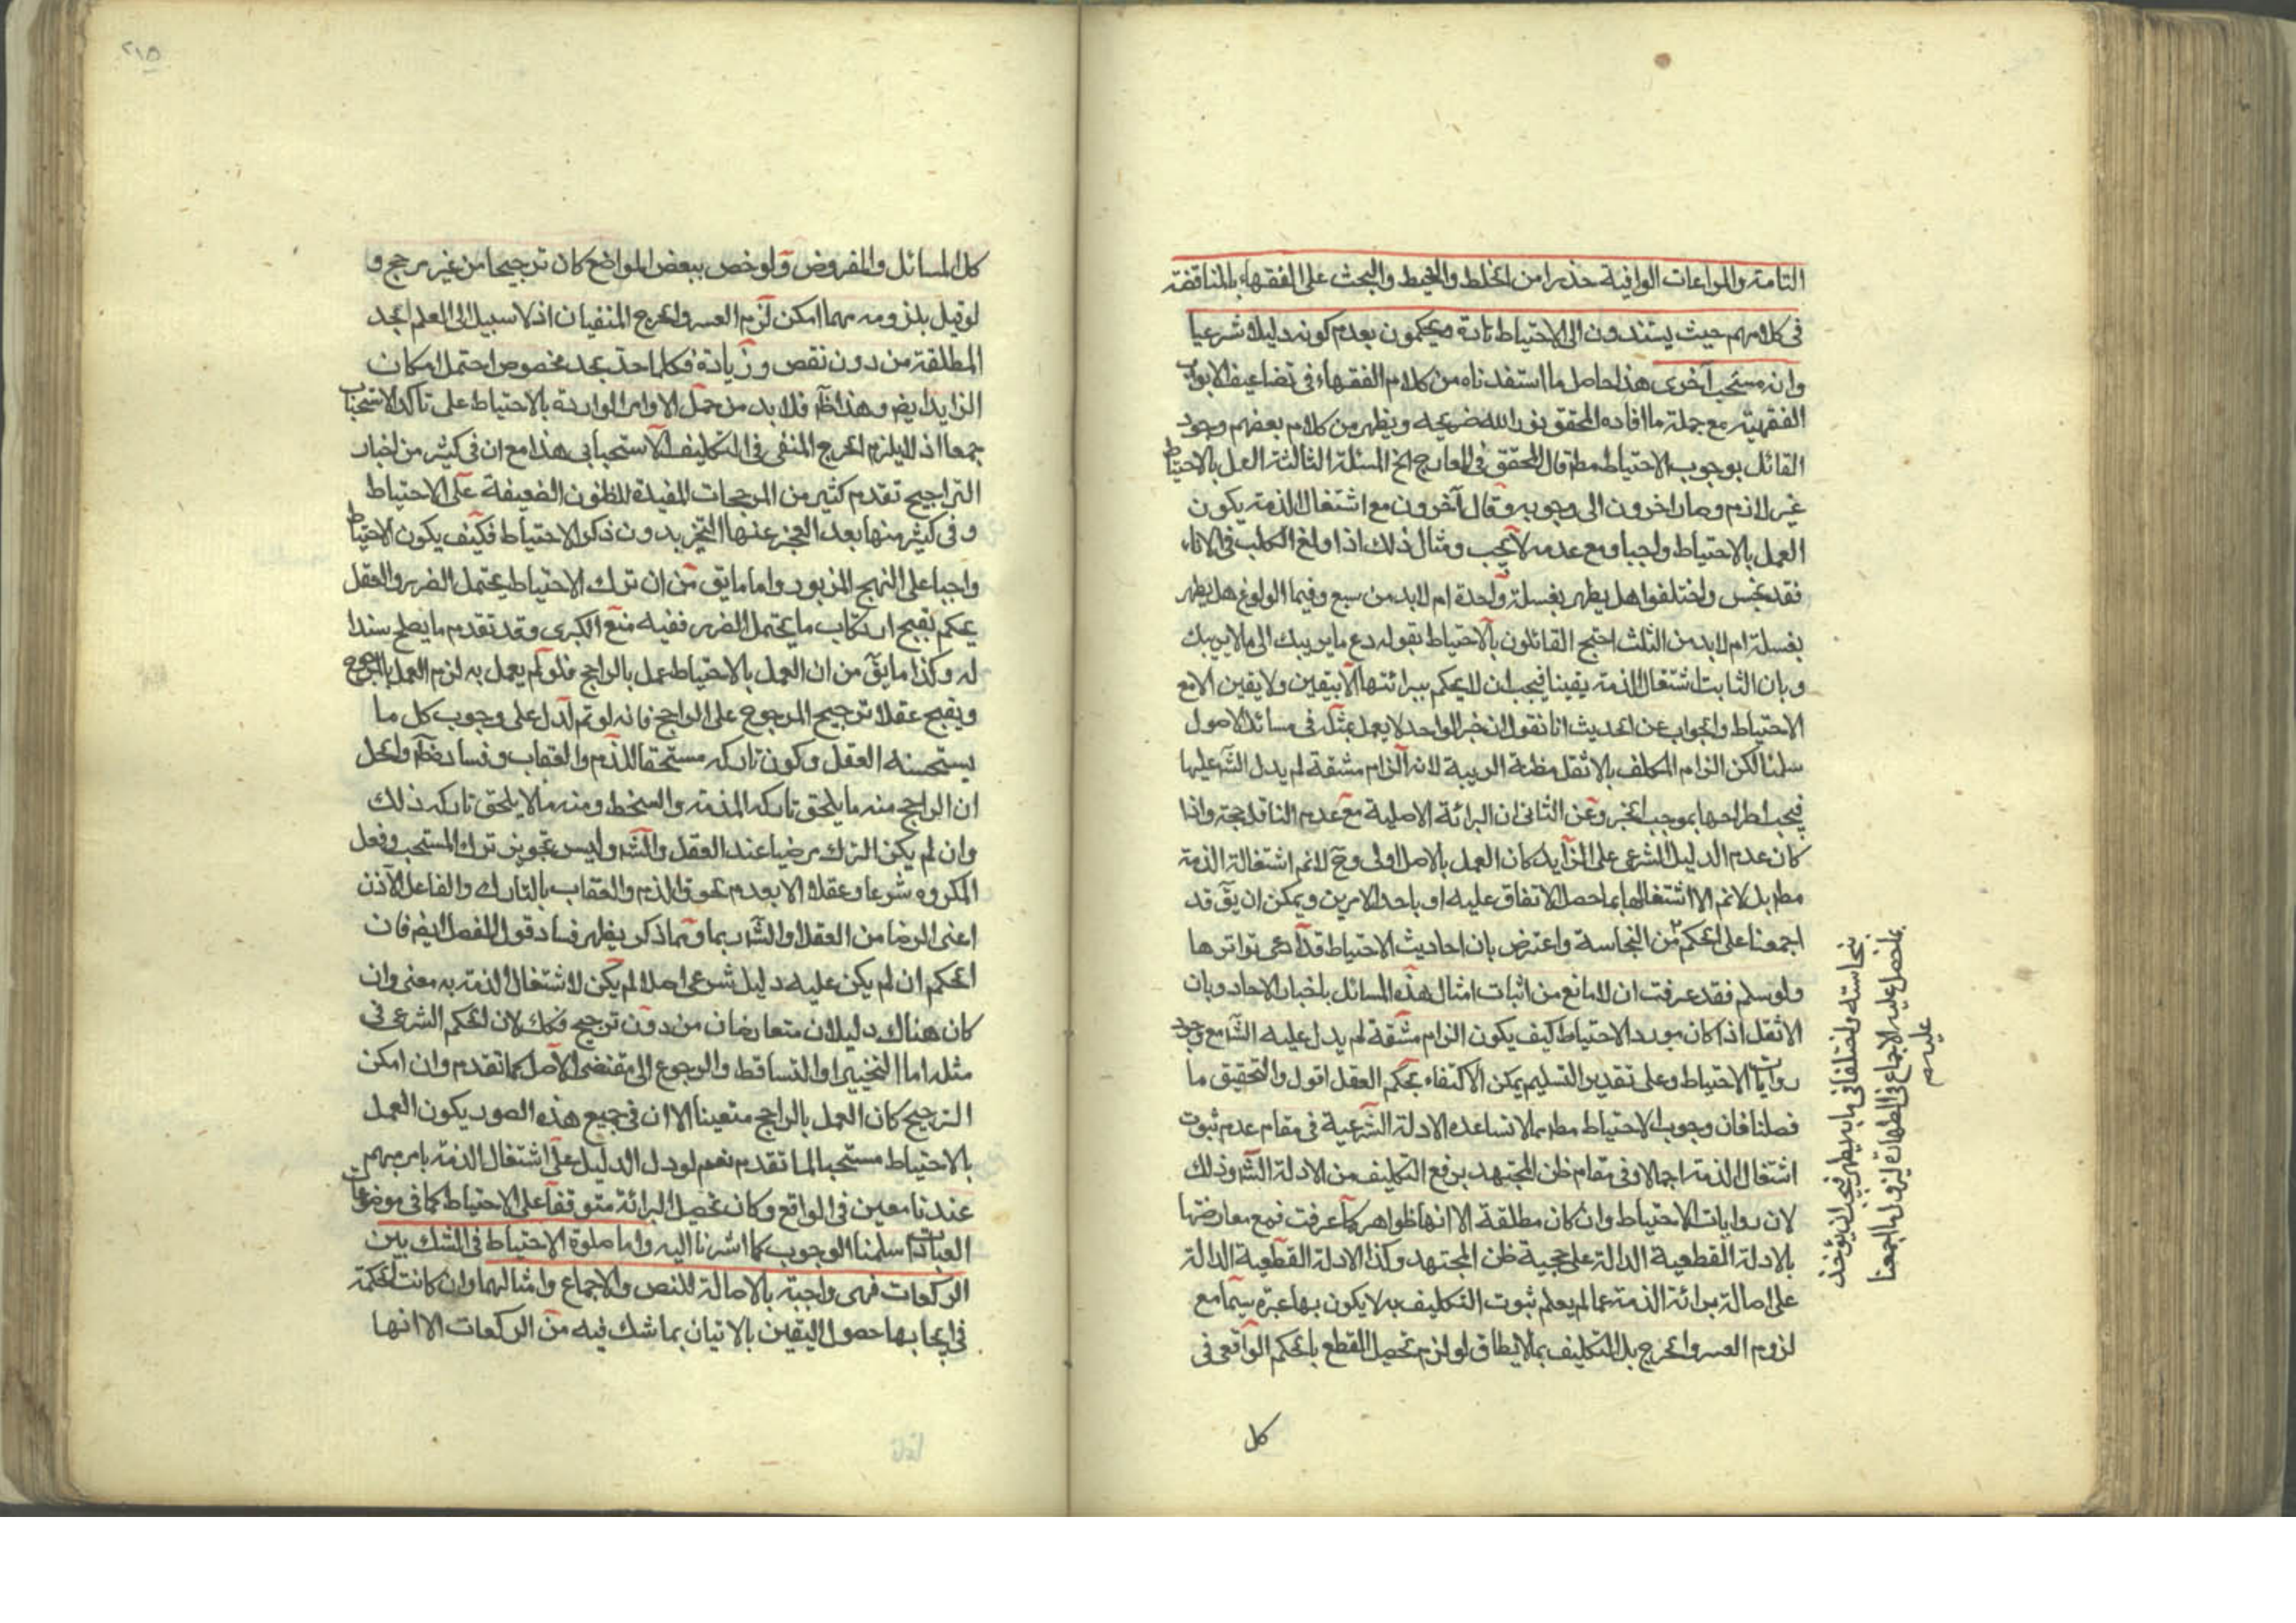 التامة والمراعات الوافية حذرا من الخلط والخبط والبحث على الفقهاء بالمناقضة
فى كلامهم حيث يستندون الى الاحتياط تارة ويحكمون بعدم كونه دليلا شرعيا
وانه مستحب اخرى هذا حاصل ما استفدناه من كلام الفقهاء فى تضاعيف الابواب
الفقهية مع جملة ما افاده المحقق نور الله ضريحه ويظهر من كلام بعضهم وجود
القائل بوجوب الاحتياط مط قال المحقق فى المعارج الخ المسئلة الثالثة العمل بالاحتياط
غير لازم وصار اخرون الى وجوبه وقال آخرون مع اشتغال الذمة يكون
العمل بالاحتياط واجبا ومع عدمه لا يجب ومثال ذلك اذا ولغ الكلب فى الاناء
فقد نجس واختلفوا هل يطهر بغسلة واحدة ام لابد من سبع وفيما الولوغ هل يطهر
بغسلة ام لابد من الثلث احتج القائلون بالاحتياط بقوله دع ما يريبك الى ما لا يريبك
وبان الثابت اشتغال الذمة يقينا فيجب ان لا يحكم ببرائتها الا بيقين ولا يقين الا مع
الاحتياط والجواب عن الحديث انا نقول ان خبر الواحد لا يعمل بمثله فى مسائل الاصول
سلمنا لكن الزام المكلف بالاثقل مظنة الريبة لانه الزام مشقة لم يدل الشرع عليها
فيجب اطراحها بموجب الخبر وعن الثانى ان البرائة الاصلية مع عدم الناقل حجة واذا
كان عدم الدليل الشرعى على الزايد كان العمل بالاصل اولى وح لا نم اشتغالة الذمة
مط بل لا نم الا اشتغالها بما حصل الاتفاق عليه او باحد الامرين ويمكن ان يق قد
اجمعنا على الحكم من النجاسة واعترض بان احاديث الاحتياط قد ادعى تواترها
ولو سلم فقد عرفت ان لا مانع من اثبات امثال هذه المسائل باخبار الاحاد وبان
الاثقل اذا كان مورد الاحتياط كيف يكون الزام مشقة لم يدل عليه الشرع مع وجود
روايات الاحتياط وعلى تقدير التسليم يمكن الاكتفاء بحكم العقل اقول والتحقيق ما
فصلنا فان وجوب الاحتياط مط مما لا تساعده الادلة الشرعية فى مقام عدم ثبوت
اشتغال الذمة اجمالا وفى مقام ظن المجتهد برفع التكليف من الادلة الشرعية وذلك
لان روايات الاحتياط وان كان مطلقة الا انها ظواهر كما عرفت فمع معارضتها
بالادلة القطعية الدالة على حجية ظن المجتهد وكذا الادلة القطعية الدالة
على اصالة برائة الذمة عما لم يعلم ثبوت التكليف به لا يكون بها عبرة سيما مع
لزوم العسر والحرج بل التكليف بما لا يطاق لو لزم تحصيل القطع بالحكم الواقعى فى
كل
نجاسته واختلفنا فى ما به يطهر فيجب ان يؤخذ
بما حصل عليه الاجماع فى الطهارة ليزول ما اجمعنا
عليه
٢١٥
كل المسائل والمفروض ولو خص ببعض المواضع كان ترجيحا من غير مرجح و
لو قيل بلزومه مهما امكن لزم العسر والحرج المنفيان اذ لا سبيل الى العلم بحد
المطلقة من دون نقص وزيادة فكلما حد بحد مخصوص احتمل امكان
الزايد ايضا وهذا ظ فلابد من حمل الاوامر الواردة بالاحتياط على تاكد الاستحباب
جمعا اذ لا يلزم الحرج المنفى فى التكليف الاستحبابى هذا مع ان فى كثير من اخبار
التراجيح تقدم كثير من المرجحات المفيدة للظنون الضعيفة على الاحتياط
وفى كثير منها بعد العجز عنها التخير بدون ذكر الاحتياط فكيف يكون الاحتياط
واجبا على النهج المزبور واما ما يق من ان ترك الاحتياط يحتمل الضرر والعقل
يحكم بقبح ارتكاب ما يحتمل الضرر ففيه منع الكبرى وقد تقدم ما يصلح سندا
له وكذا ما يق من ان العمل بالاحتياط عمل بالراجح فلو لم يعمل به لزم العمل بالمرجوح
ويقبح عقلا ترجيح المرجوح على الراجح فانه لو تم لدل على وجوب كل ما
يستحسنه العقل وكون تاركه مستحقا للذم والعقاب وفساده ظ والحل
ان الراجح منه ما يلحق تاركه المذمة والسخط ومنه ما لا يلحق تاركه ذلك
وان لم يكن الترك مرضيا عند العقل والشرع وليس تجويز ترك المستحب وفعل
المكروه شرعا وعقلا الا بعدم لحوق الذم والعقاب بالتارك والفاعل الاذن
اعنى الرضا من العقل او الشرع بما ومما ذكر يظهر فساد قول المفصل ايضا فان
الحكم ان لم يكن عليه دليل شرعى اصلا لم يكن لاشتغال الذمة به معنى وان
كان هناك دليلان متعارضان من دون ترجيح فكك لان الحكم الشرعى فى
مثله اما التخيير او التساقط والرجوع الى مقتضى الاصل كما تقدم وان امكن
الترجيح كان العمل بالراجح متعينا الا ان فى جميع هذه الصور يكون العمل
بالاحتياط مستحبا لما تقدم نعم لو دل الدليل على اشتغال الذمة بامر مبهم
عندنا معين فى الواقع وكان تحصيل البرائة متوقفا على الاحتياط كما فى موضوعات
العبادات سلمنا الوجوب كما اشرنا اليه واما صلوة الاحتياط فى الشك بين
الركعات فهى واجبة بالاصالة للنص والاجماع وامثالهما وان كانت الحكمة
فى ايجابها حصول اليقين بالاتيان بما شك فيه من الركعات الا انها